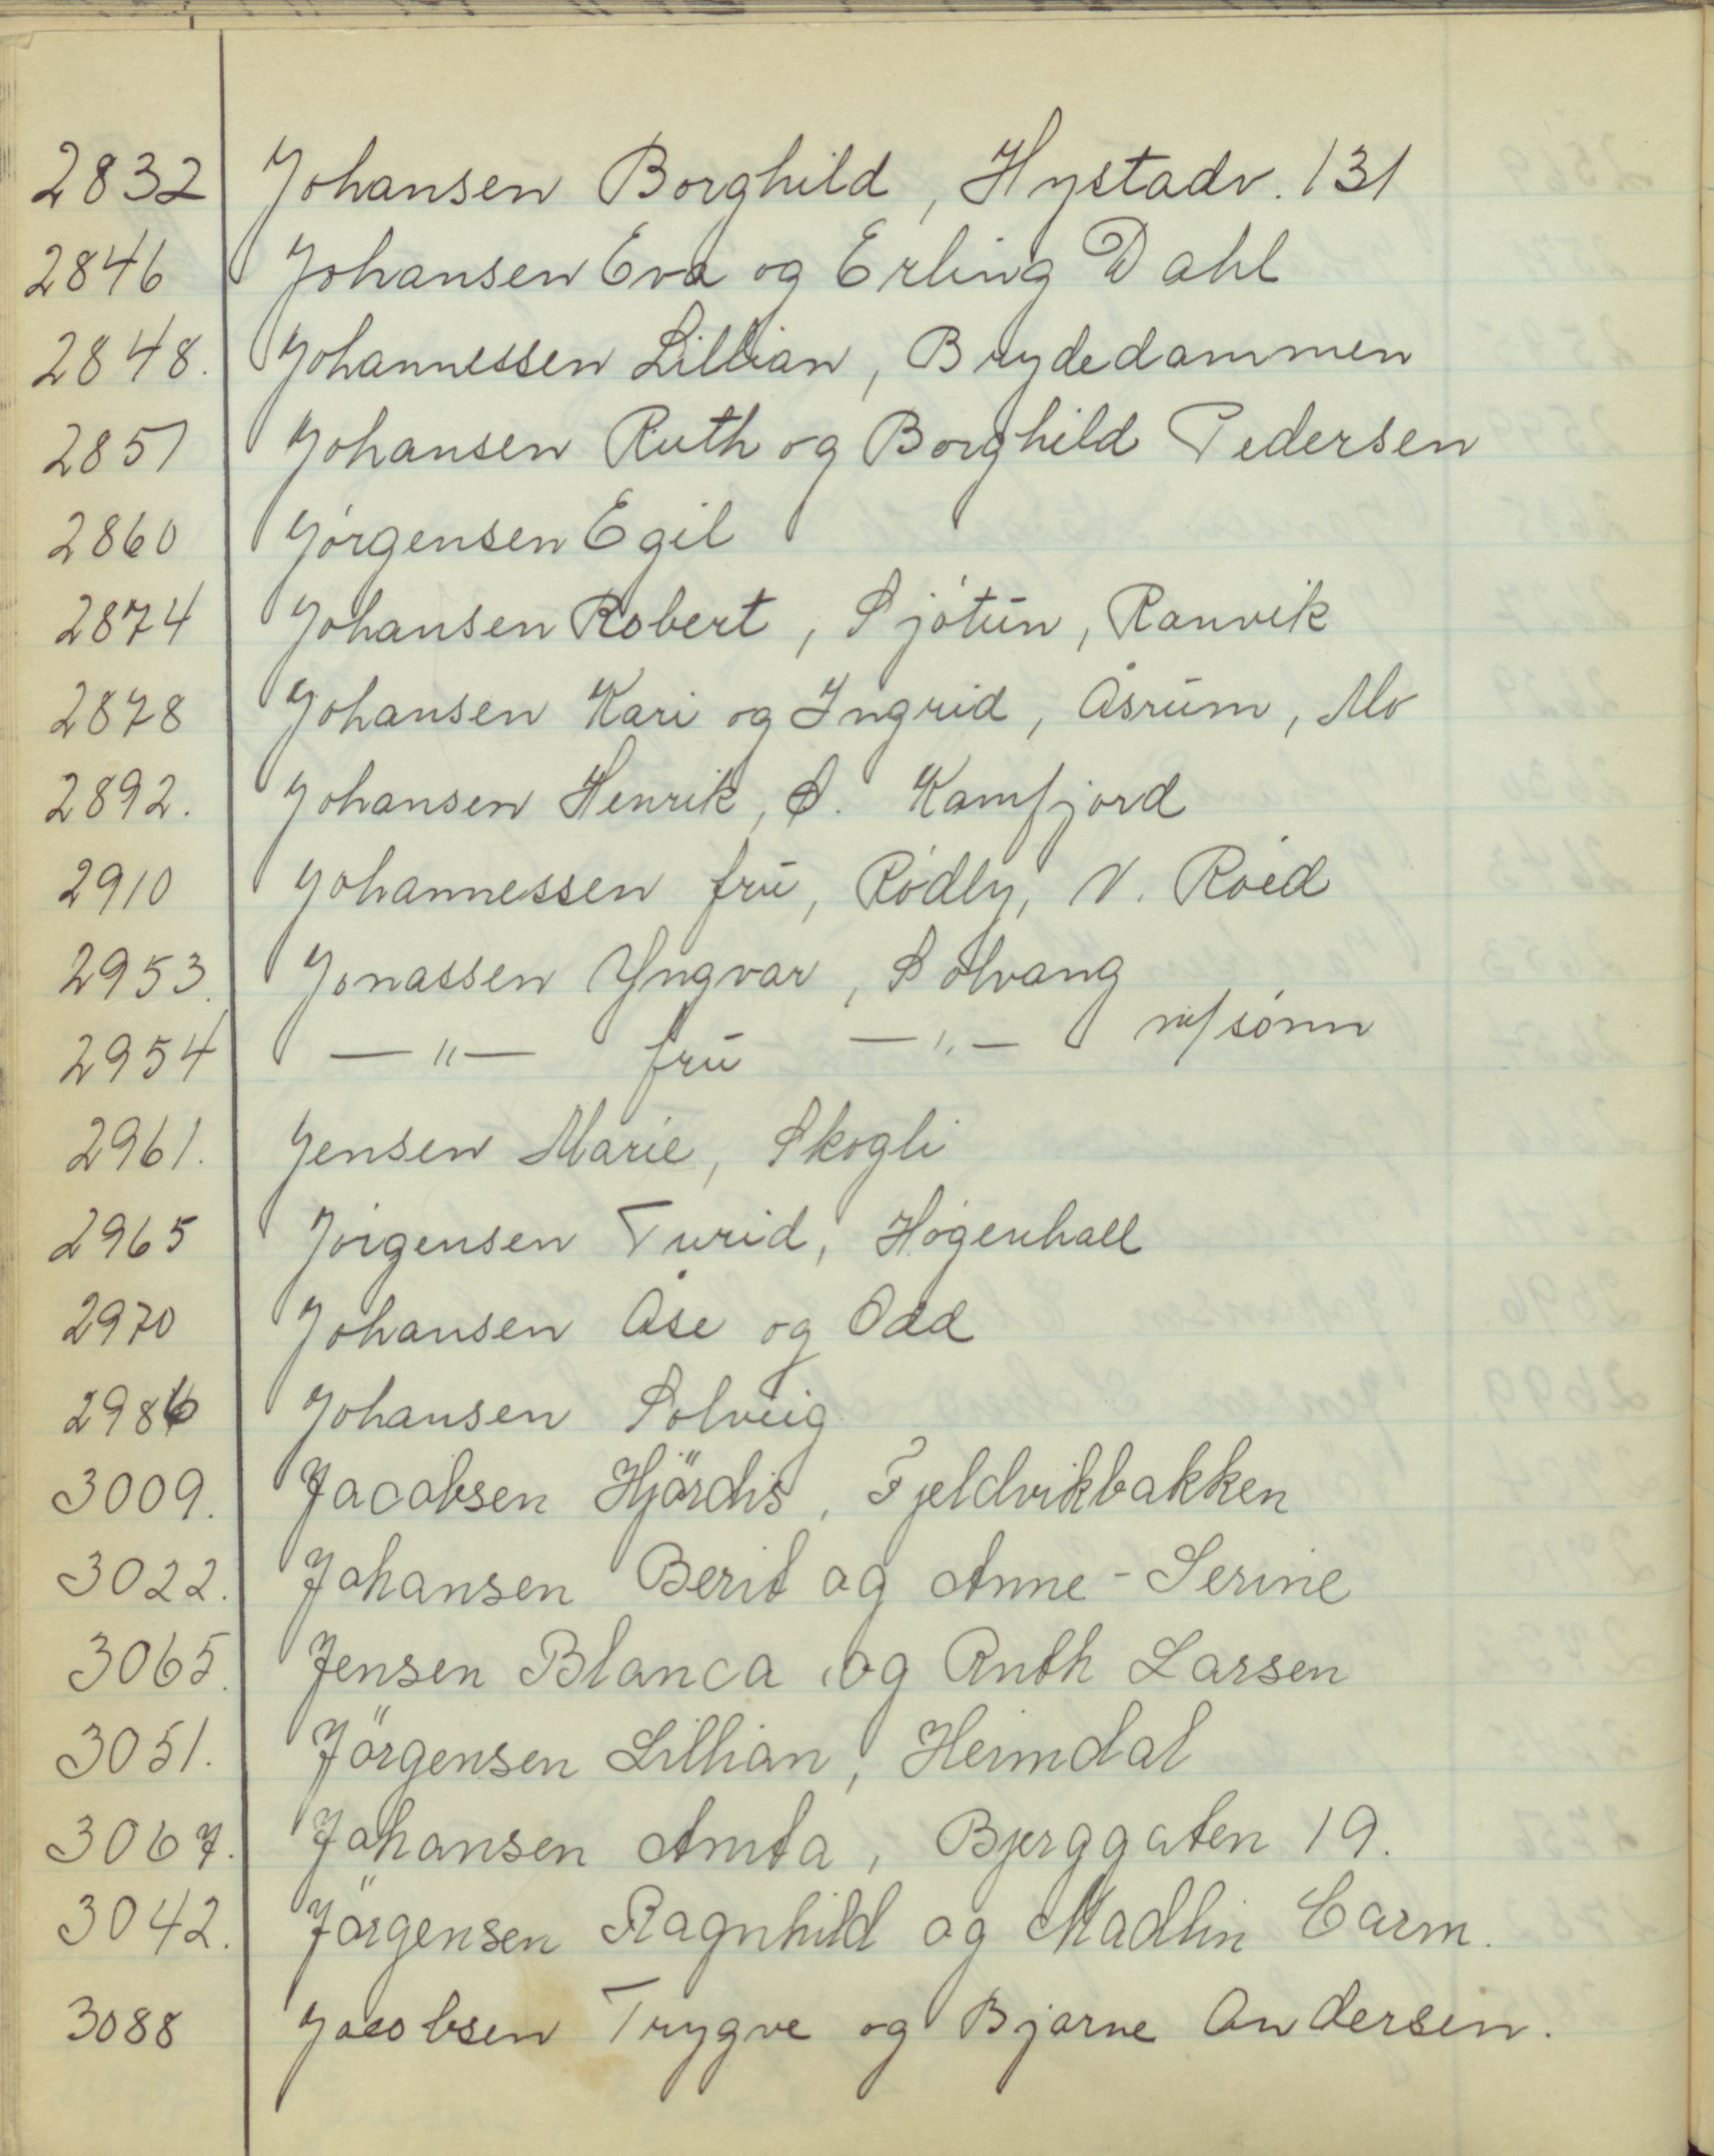 2832 Johansen Borghild, Hystadv. 131
2846 Johansen Eva og Erling Dahl
2848. Johannessen Lillian, Brydedammen
2851 Johansen Ruth og Borghild Pedersen
2860 Jórgensen Egil
2874 Johansen Robert, Sjótūn, Ranvik
2878 Johansen Kari og Ingrid, Åsrūm, Mo
2892. Johansen Henrik, S. Kamfjord
2910 Johannessen frū, Ródby, V. Róed
2953. Jonassen Yngvar, Solvang
2954 —"— frū —"— m/sónn
2961. Jensen Marie, Skogli
2965 Jórgensen Turid, Hógenhall
2970 Johansen Åse og Odd
2986 Johansen Solveig
3009. Jacobsen Hjördis, Fjeldvikbakken
3022. Johansen Berit og Anne-Serine
3065. Jensen Blanca og Ruth Larsen
3051. Jörgensen Lillian, Heimdal
3067. Johansen Anita, Bjerggaten 19.
3042. Jörgensen Ragnhild og Madlin Carm.
3088 Jacobsen Trygve og Bjarne Andersen.